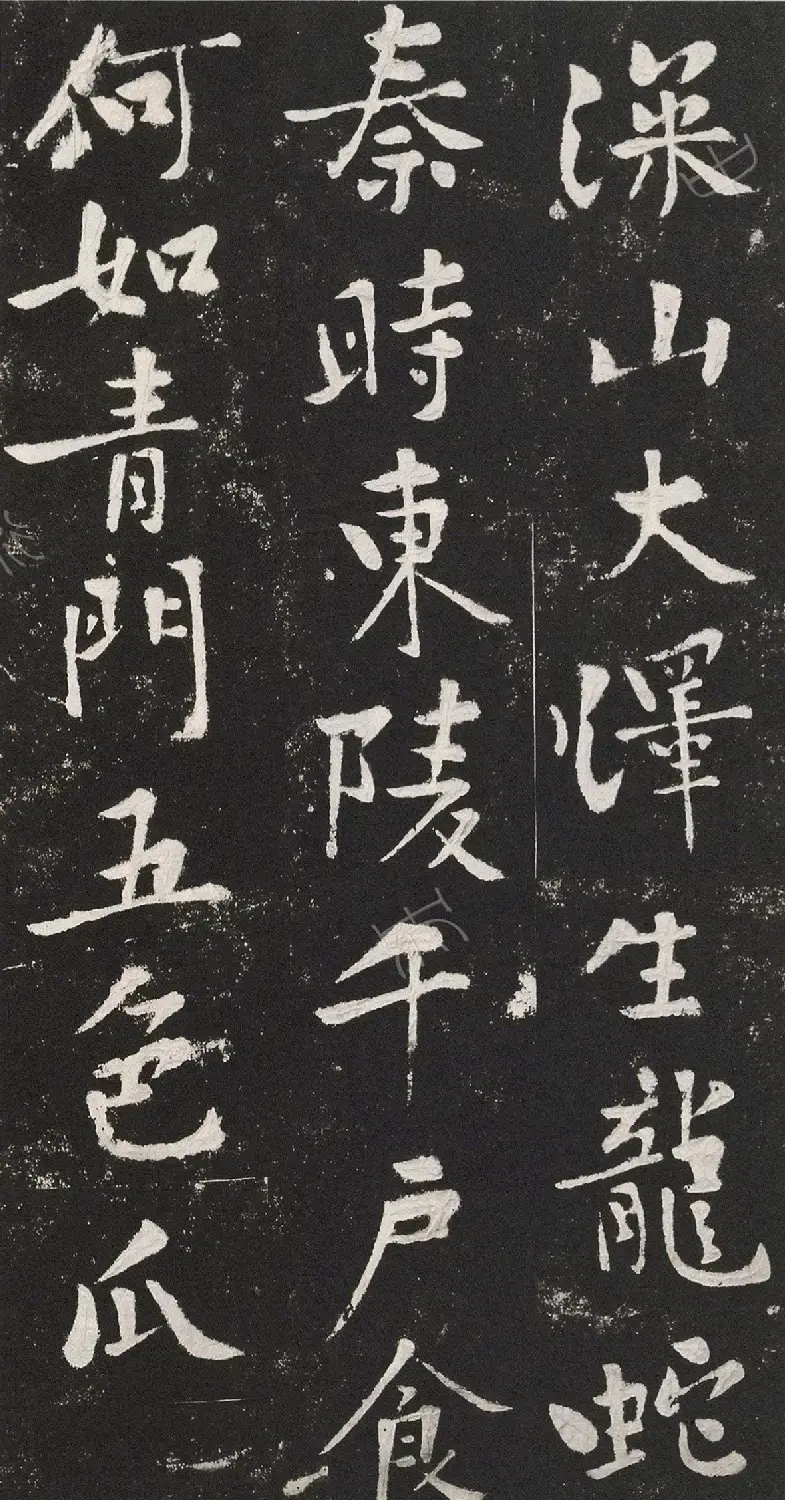 深山大澤生龍蛇
秦時東陵千户食
何如青門五色瓜